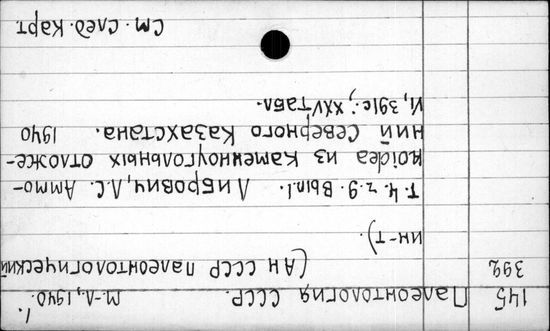 1.
145 Палеонтология СССР. М.-Л., 1940.
392 (АН СССР палеонтологический
ин-т).
Т. 4. ч. 9. Вып. 1. Либрович, Л.С. Аммо-
noidea из каменноугольных отложе-
ний Северного Казахстана. 1940
VI, 391с.; XXV табл.
См. след. карт.